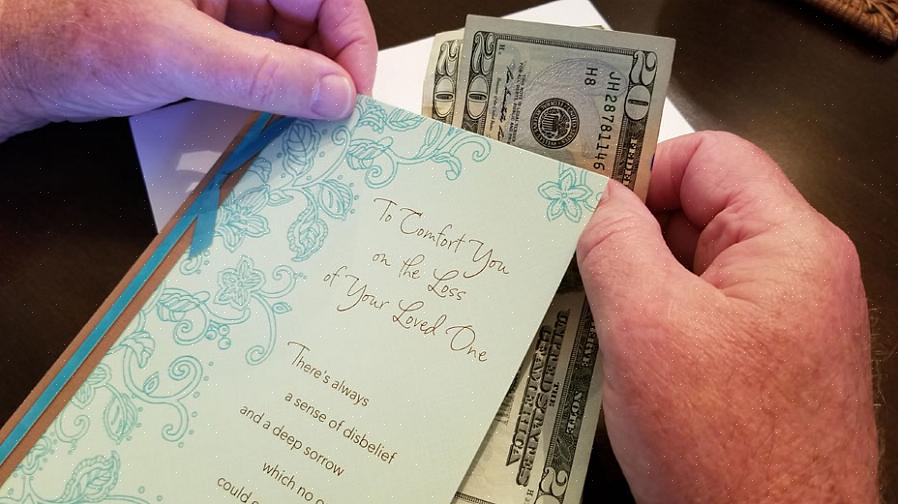 To Comfort You
on the Loss
of Your Loved One
There's always
a sense of disbelief
and a deep sorrow
which no
could
20
20
JH28781146
H8
20
UNITED STATES
THE
OF AMERICA
20
NOTE